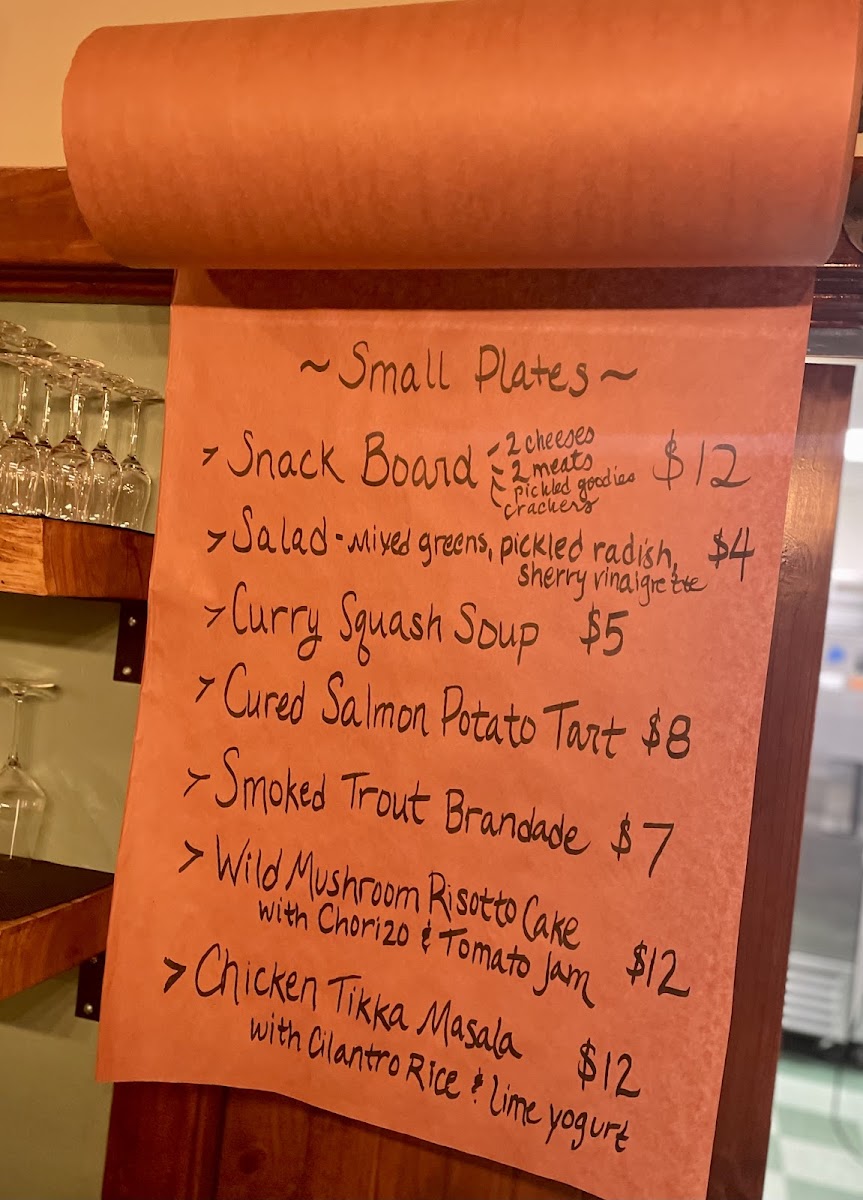 ~ Small Plates ~
> Snack Board - 2 cheeses - 2 meats - pickled goodies - crackers $12
> Salad - mixed greens, pickled radish, $4
sherry vinaigrette
> Curry Squash Soup $5
> Cured Salmon Potato Tart $8
> Smoked Trout Brandade $7
> Wild Mushroom Risotto Cake
with Chorizo & Tomato Jam $12
> Chicken Tikka Masala
with Cilantro Rice & lime yogurt $12